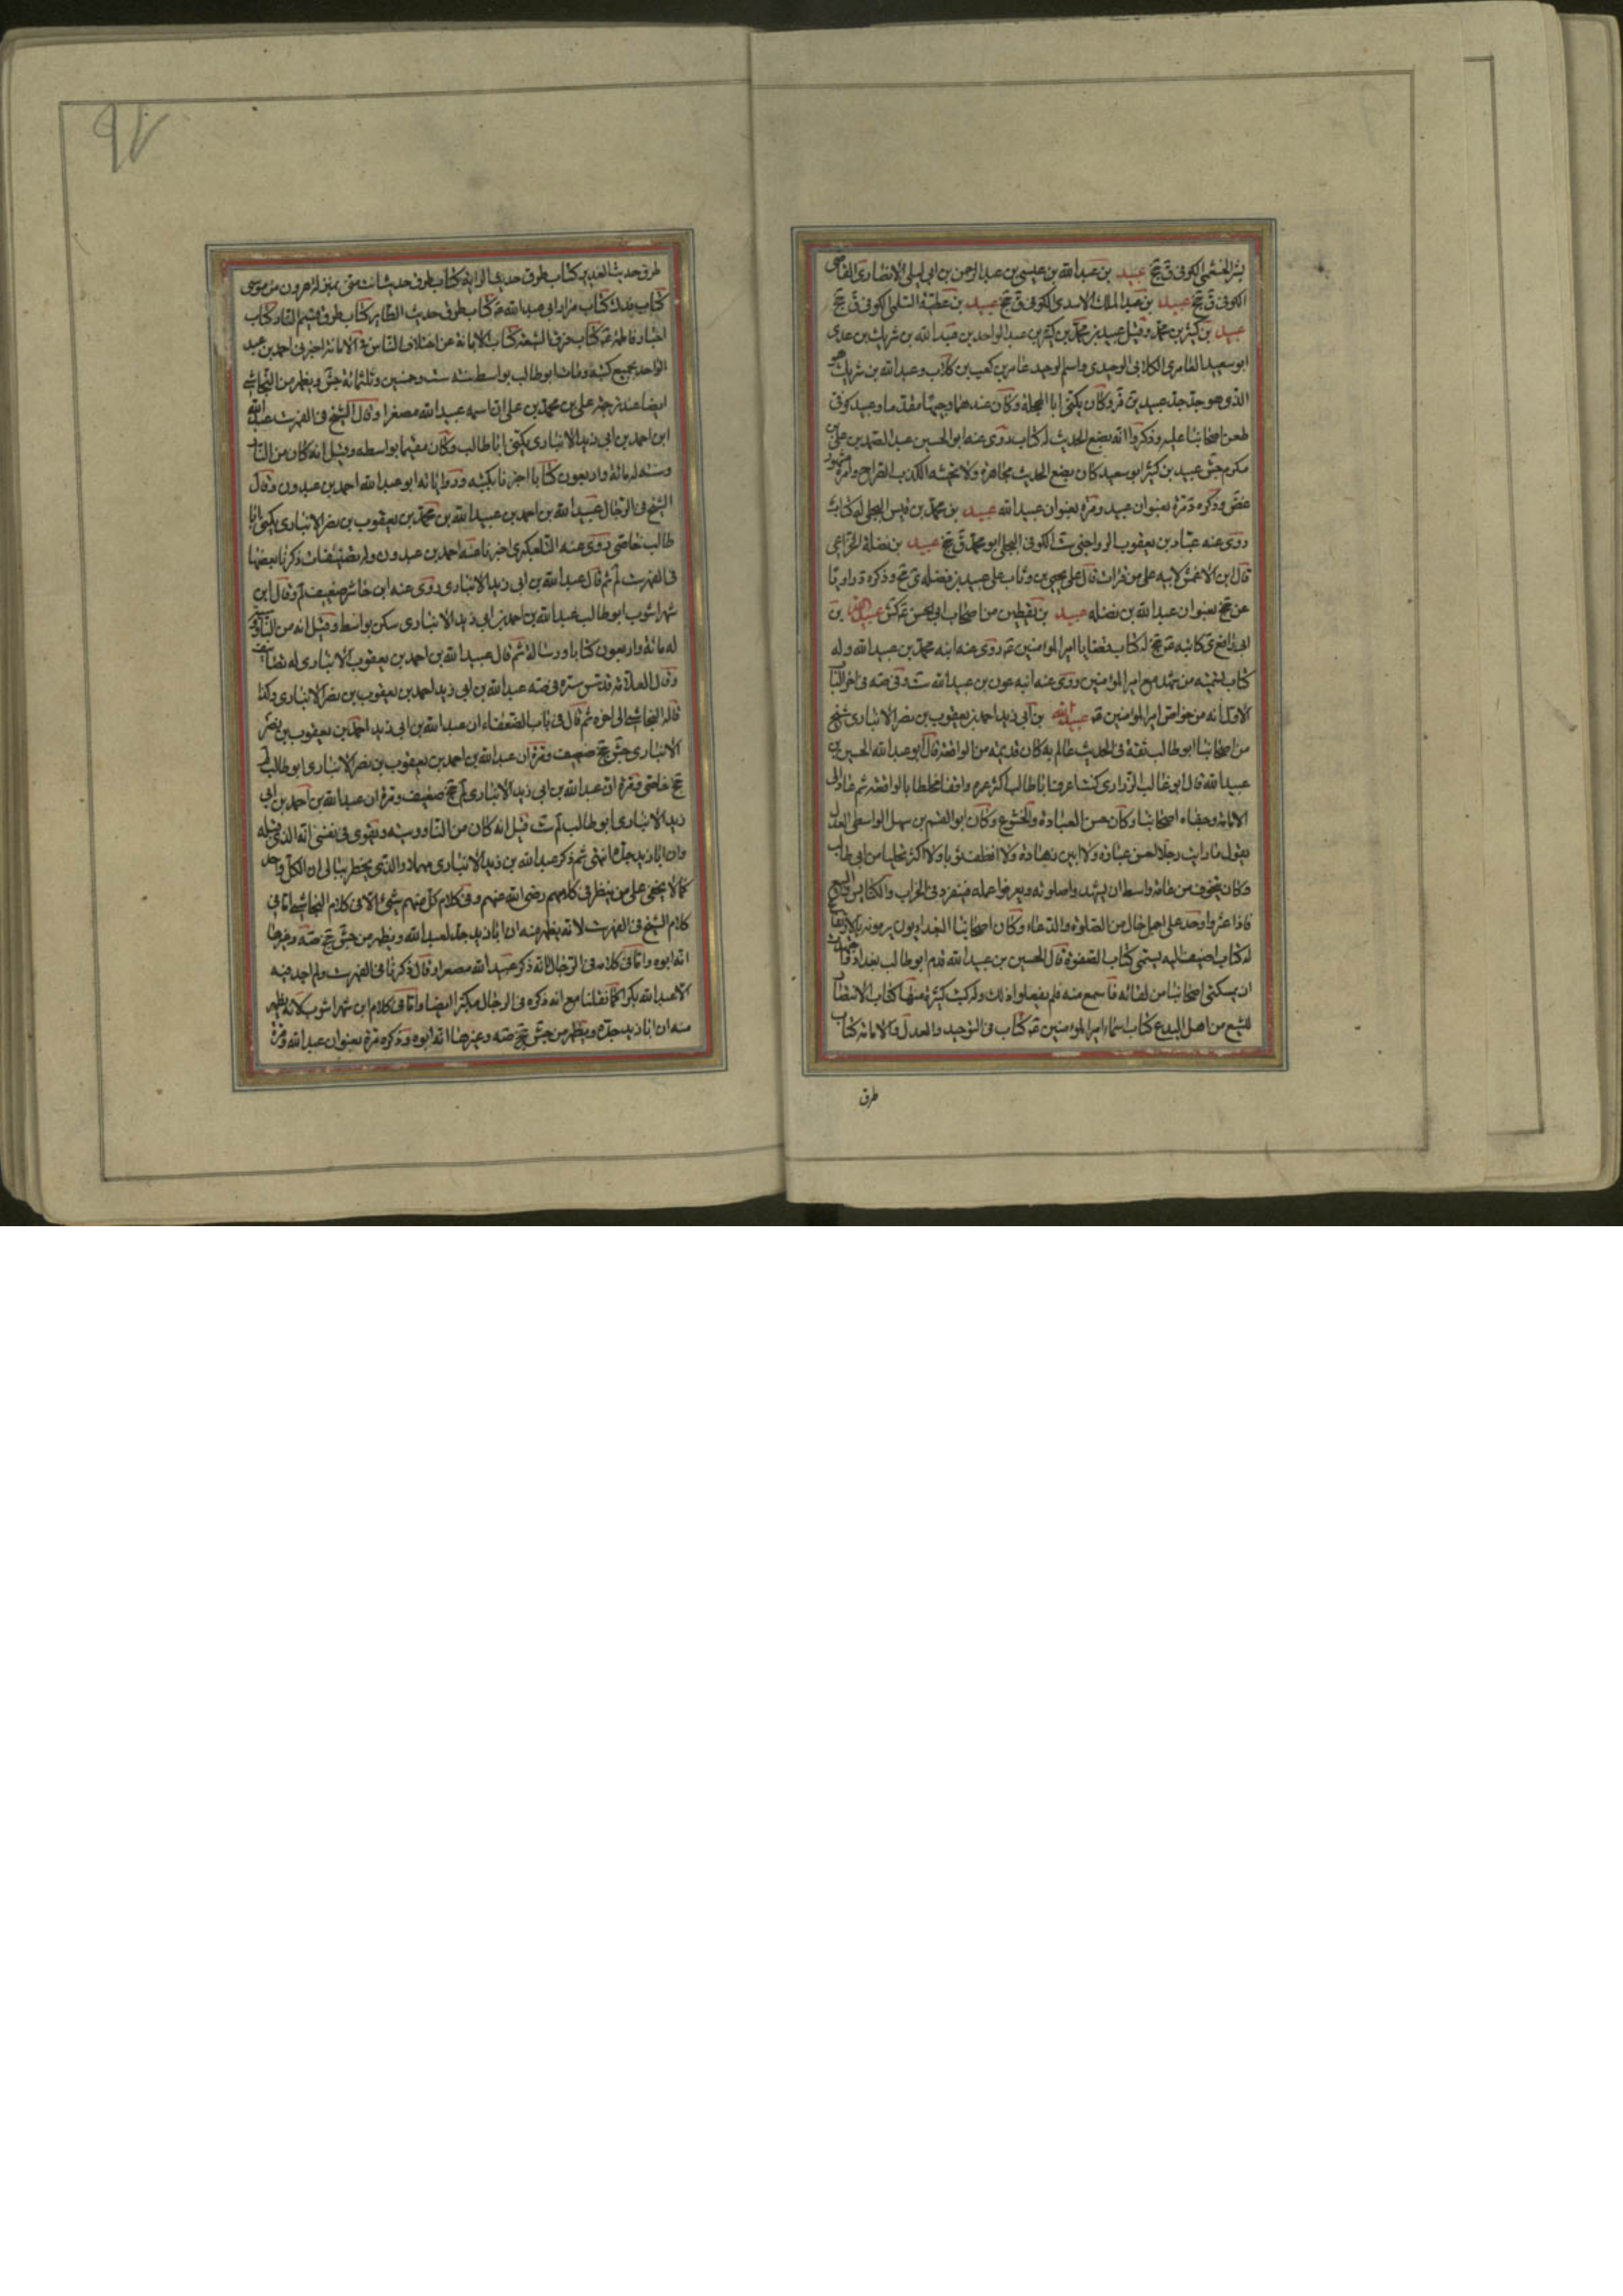 بشر الخثعمي الكوفي ق جخ عبيد بن عبد الله بن عيسى بن عبد الرحمن بن ابي ليلى الانصاري القاضي
الكوفي ق جخ عبيد بن عبد الملك الاسدي الكوفي ق جخ عبيد بن عطية السلمي الكوفي ق جخ
عبيد بن كثير بن محمد وقيل عبيد بن محمد بن كثير بن عبد الواحد بن عبد الله بن شريك بن عدي
ابو سعيد العامري الكلابي الوحيدي واسم الوحيد عامر بن كعب بن كلاب وعبد الله بن شريك هو
الذي هو جد جد عبيد بن وكان يكنى ابا المحجل وكان عندهما وجيها مقدما وعبيد كوفي
طعن اصحابنا عليه وذكروا انه يضع الحديث له كتاب روى عنه ابو الحسين عبد الصمد بن علي بن
مكرم جش عبيد بن كثير ابو سعيد كان يضع الحديث مجاهرة ولا يحتشم الكذب الصراح وامره مشهور
غض وذكره مرة بعنوان عبيد ومرة بعنوان عبيد الله عبيد بن محمد بن قيس البجلي له كتاب
روى عنه عباد بن يعقوب الرواجني ست الكوفي البجلي ابو محمد ق جخ عبيد بن نضلة الخزاعي
قال ابن الاعمش لابيه على من قرات قال على يحيى بن وثاب على عبيد بن نضلة ي جخ وذكره د
عن جخ بعنوان عبد الله بن نضله عبيد بن يقطين من اصحاب ابي الحسن ع كش عبيد الله بن
ابي رافع ي كاتبه ع جخ له كتاب قضايا امير المؤمنين ع روى عنه ابنه محمد بن عبيد الله وله
كتاب تسمية من شهد مع امير المؤمنين روى عنه ابنه عون بن عبيد الله ست وفي صه في اخر الباب
الاول انه من خواص امير المؤمنين ع عبيد الله بن ابي زيد احمد بن يعقوب بن نصر الانباري شيخ
من اصحابنا ابو طالب ثقة في الحديث عالم به كان قديمه من الواقفة قال ابو عبد الله الحسين بن
عبيد الله قال ابو غالب الزراري كنت اعرف ابا طالب اكثر عمره واقفا مختلطا بالواقفة ثم عاد الى
الامامة وجفاه اصحابنا وكان حسن العبادة والخشوع وكان ابو القسم بن سهل الواسطي العدل
يقول ما رايت رجلا احسن عبادة ولا ابين زهادة ولا انظف ثوبا ولا اكثر تحليا من ابي طالب
وكان يتخوف من عامة واسط ان يشهدوا صلوته ويعرفوا عمله فينفرد في الخراب والكنايس والبيع
فاذا عثروا به وجد على اجمل حال من الصلوة والدعاء وكان اصحابنا البغداديون يرمونه بالارتفاع
له كتاب اضيف اليه يسمى كتاب الصفوة قال الحسين بن عبيد الله قدم ابو طالب بغداد فاجتهدت
ان يمكنني اصحابنا من لقائه فاسمع منه فلم يفعلوا ذلك وله كتب كثيرة منها كتاب الانتصار
للشيع من اهل البدع كتاب اسماء امير المؤمنين ع كتاب في التوحيد والعدل والامامة كتاب
طرق
طرق حديث الغدير كتاب طرق حديث الراية كتاب طرق حديث انت مني بمنزلة هرون من موسى
كتاب فدك كتاب مزار ابي عبد الله ع كتاب طرق حديث الطاير كتاب طرق قسيم النار كتاب
اخبار فاطمة ع كتاب فرق الشيعة كتاب الابانة عن اختلاف الناس في الامامة اخبرني احمد بن عبد
الواحد بجميع كتبه ومات ابو طالب بواسط سنة ست وخمسين وثلثمائة جش ويظهر من النجاشي
ايضا عند ترجمة علي بن محمد بن علي ان اسمه عبيد الله مصغرا وقال الشيخ في الفهرست عبد الله
ابن احمد بن ابي زيد الانباري يكنى ابا طالب وكان مقيما بواسط وقيل انه كان من الناو
وسية له مائة واربعون كتابا اخبرنا بكتبه ورواياته ابو عبد الله احمد بن عبدون وقال
الشيخ في الرجال عبيد الله بن احمد بن عبيد الله بن محمد بن يعقوب بن نصر الانباري يكنى ابا
طالب خاصي روى عنه التلعكبري اخبرنا عنه احمد بن عبدون وله تصنيفات ذكرنا بعضها
في الفهرست لم ثم قال عبد الله بن ابي زيد الانباري روى عنه ابن حاشر ضعيف لم وقال ابن
شهراشوب ابو طالب عبد الله بن احمد بن ابي زيد الانباري سكن بواسط وقيل انه من الناووسية
له مائة واربعون كتابا ورسالة ثم قال عبيد الله بن احمد بن يعقوب الانباري له تصانيف
وقال العلامة قدس سره في صه عبد الله بن ابي زيد احمد بن يعقوب بن نصر الانباري وكذا
قاله النجاشي الى اخره ثم قال في باب الضعفاء ان عبد الله بن ابي زيد احمد بن يعقوب بن نصر
الانباري جش جخ ضعيف ومرة ان عبد الله بن احمد بن يعقوب بن نصر الانباري ابو طالب لم
جخ خاصي ومرة ان عبد الله بن ابي زيد الانباري لم جخ ضعيف ومرة ان عبد الله بن احمد بن ابي
زيد الانباري ابو طالب لم ست قيل انه كان من الناووسية ويقوى في نفسي انه الذي قبله
وان ابا زيد جده انتهى ثم ذكر عبد الله بن زيد الانباري مهملا والذي يخطر ببالي ان الكل واحد
كما لا يخفى على من ينظر في كلامهم رضي الله عنهم وفي كلام كل منهم شيء الا في كلام النجاشي اما في
كلام الشيخ في الفهرست لانه يظهر منه ان ابا زيد جد لعبد الله ويظهر من جش جخ صه وغيرها
انه ابوه واما في كلامه في الرجال لانه ذكر عبيد الله مصغرا وقال ذكرنا في الفهرست ولم اجد فيه
الا عبد الله مكبرا كما نقلنا مع انه ذكره في الرجال مكبرا ايضا واما في كلام ابن شهراشوب لانه يظهر
منه ان ابا زيد جده ويظهر من جش جخ صه وغيرها انه ابوه وذكره مرة بعنوان عبد الله ومرة